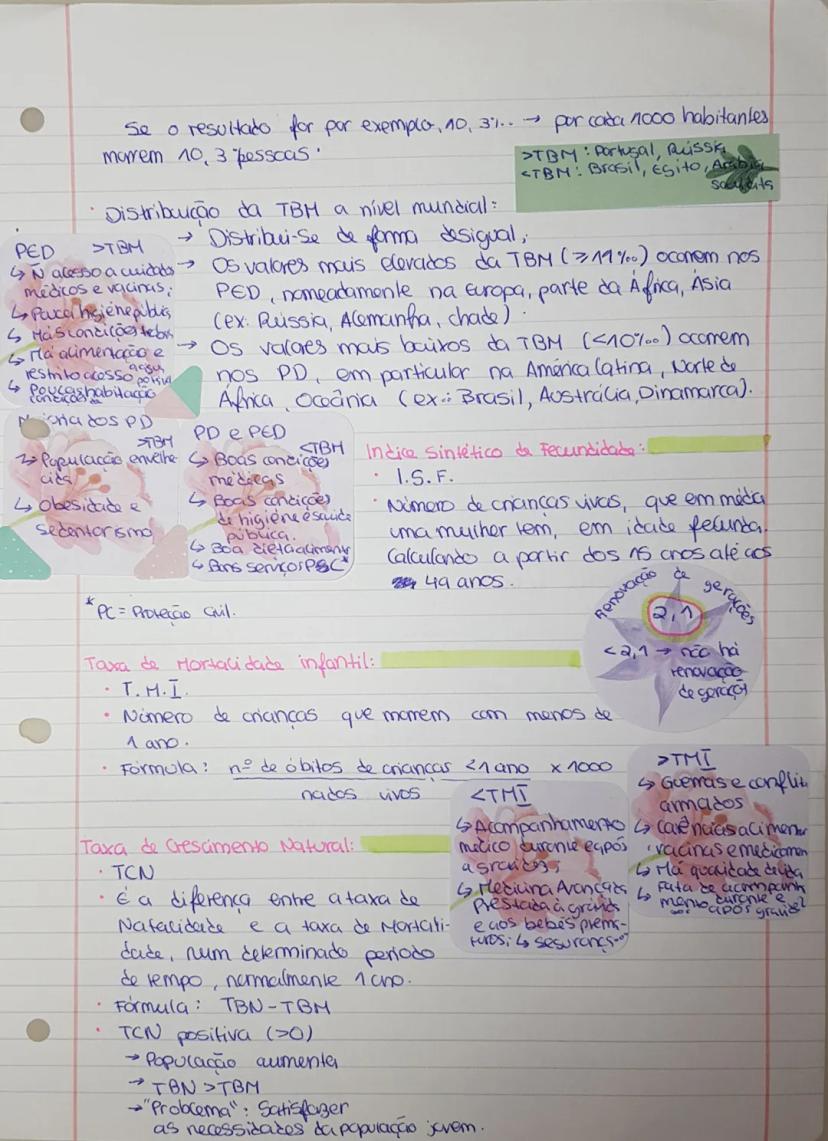 Se o resultado for por exemplo, 10, 3‰ → por cada 1000 habitantes
morrem 10, 3 pessoas.
>TBM: Portugal, Rússia
<TBM: Brasil, Egito, Arábia
saudita
• Distribuição da TBM a nível mundial:
→ Distribui-se de forma desigual;
→ Os valores mais elevados da TBM (≥11‰) ocorrem nos
PED, nomeadamente na Europa, parte da África, Ásia
(ex: Rússia, Alemanha, chade).
→ Os valores mais baixos da TBM (<10‰) ocorrem
nos PD, em particular na América latina, Norte de
África, Oceânia (ex.: Brasil, Austrália, Dinamarca).
PED >TBM
↳ Ñ acesso a cuidados
médicos e vacinas;
↳ Pouca higiene públic
↳ Más condições
↳ Má alimentação e
restrito acesso água
potável
↳ Poucas habitação
condições
Maioria dos PD
>TBM
↳ População envelhe
cida
↳ Obesidade e
sedentarismo
PD e PED
<TBM
↳ Boas condições
médicas
↳ Boas condições
de higiene e saúde
pública.
↳ Boa dieta
↳ Bons serviços P&C*
* PC = Proteção Civil.
Indice Sintético de Fecundidade:
• I.S.F.
• Número de crianças vivas, que em média
uma mulher tem, em idade fecunda.
Calculando a partir dos 15 anos até aos
49 anos.
Renovação de gerações
2,1
<2,1 → não há
renovação
de geraçõ
Taxa de Mortalidade infantil:
• T.M.I.
• Número de crianças que morrem com menos de
1 ano.
• Fórmula: nº de óbitos de crianças <1 ano x 1000
nados vivos
<TMI
↳ Acompanhamento
médico durante e após
a gravidez;
↳ Medicina Avançada
Prestada à grávida
e aos bebés prema-
turos; ↳ segurança
>TMI
↳ Guerras e conflit
armados
↳ Carências alimen
vacinas e medicamen
↳ Má qualidade de vida
↳ Falta de acompanh
mento durante e
após gravidez
Taxa de Crescimento Natural:
• TCN
• É a diferença entre a taxa de
Natalidade e a taxa de Mortali-
dade, num determinado período
de tempo, normalmente 1 ano.
• Fórmula: TBN-TBM
• TCN positiva (>0)
→ População aumenta
→ TBN >TBM
→ "Problema": Satisfazer
as necessidades da população jovem.